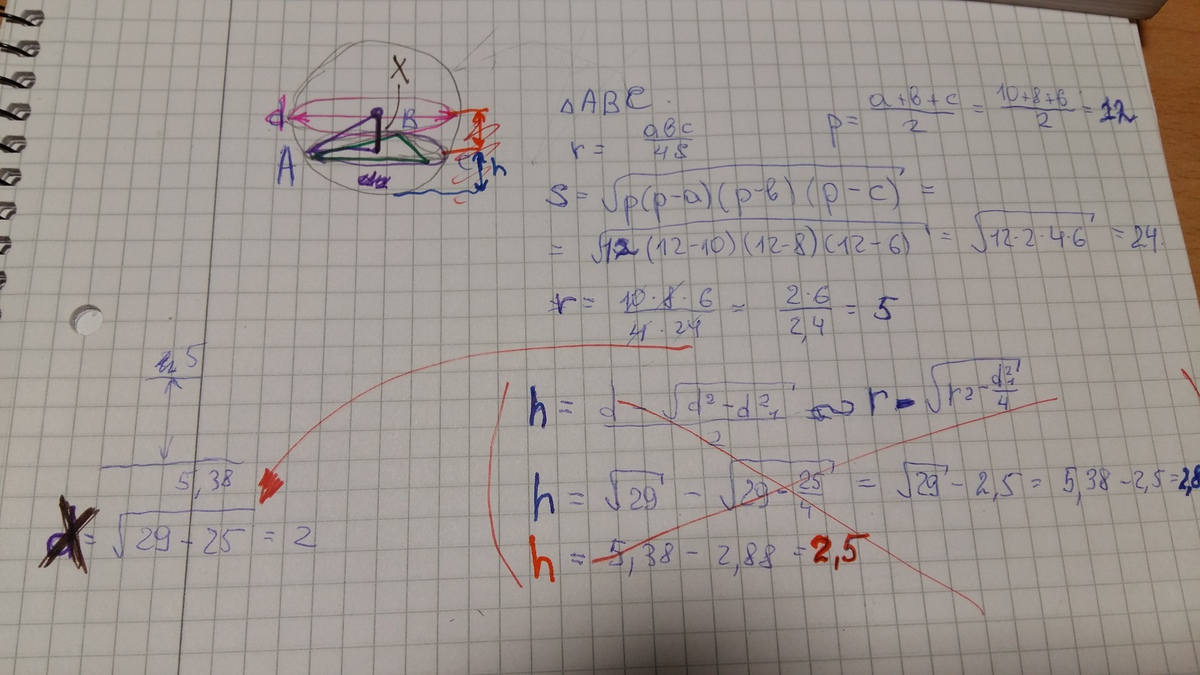 X
d
B
A
h
△ABC.
r = abc/4S
p = a+b+c/2 = 10+8+6/2 = 12
S = √p(p-a)(p-b)(p-c) =
= √12(12-10)(12-8)(12-6) = √12·2·4·6 = 24.
r = 10·8·6/4·24 = 2·6/2,4 = 5
5
h = d - √d²-d₁²/2 r - √r²-d₁²/4
5,38
h = √29 - √29-25/4 = √29 - 2,5 = 5,38 - 2,5 =
= √29-25 = 2
h = 5,38 - 2,88 = 2,5